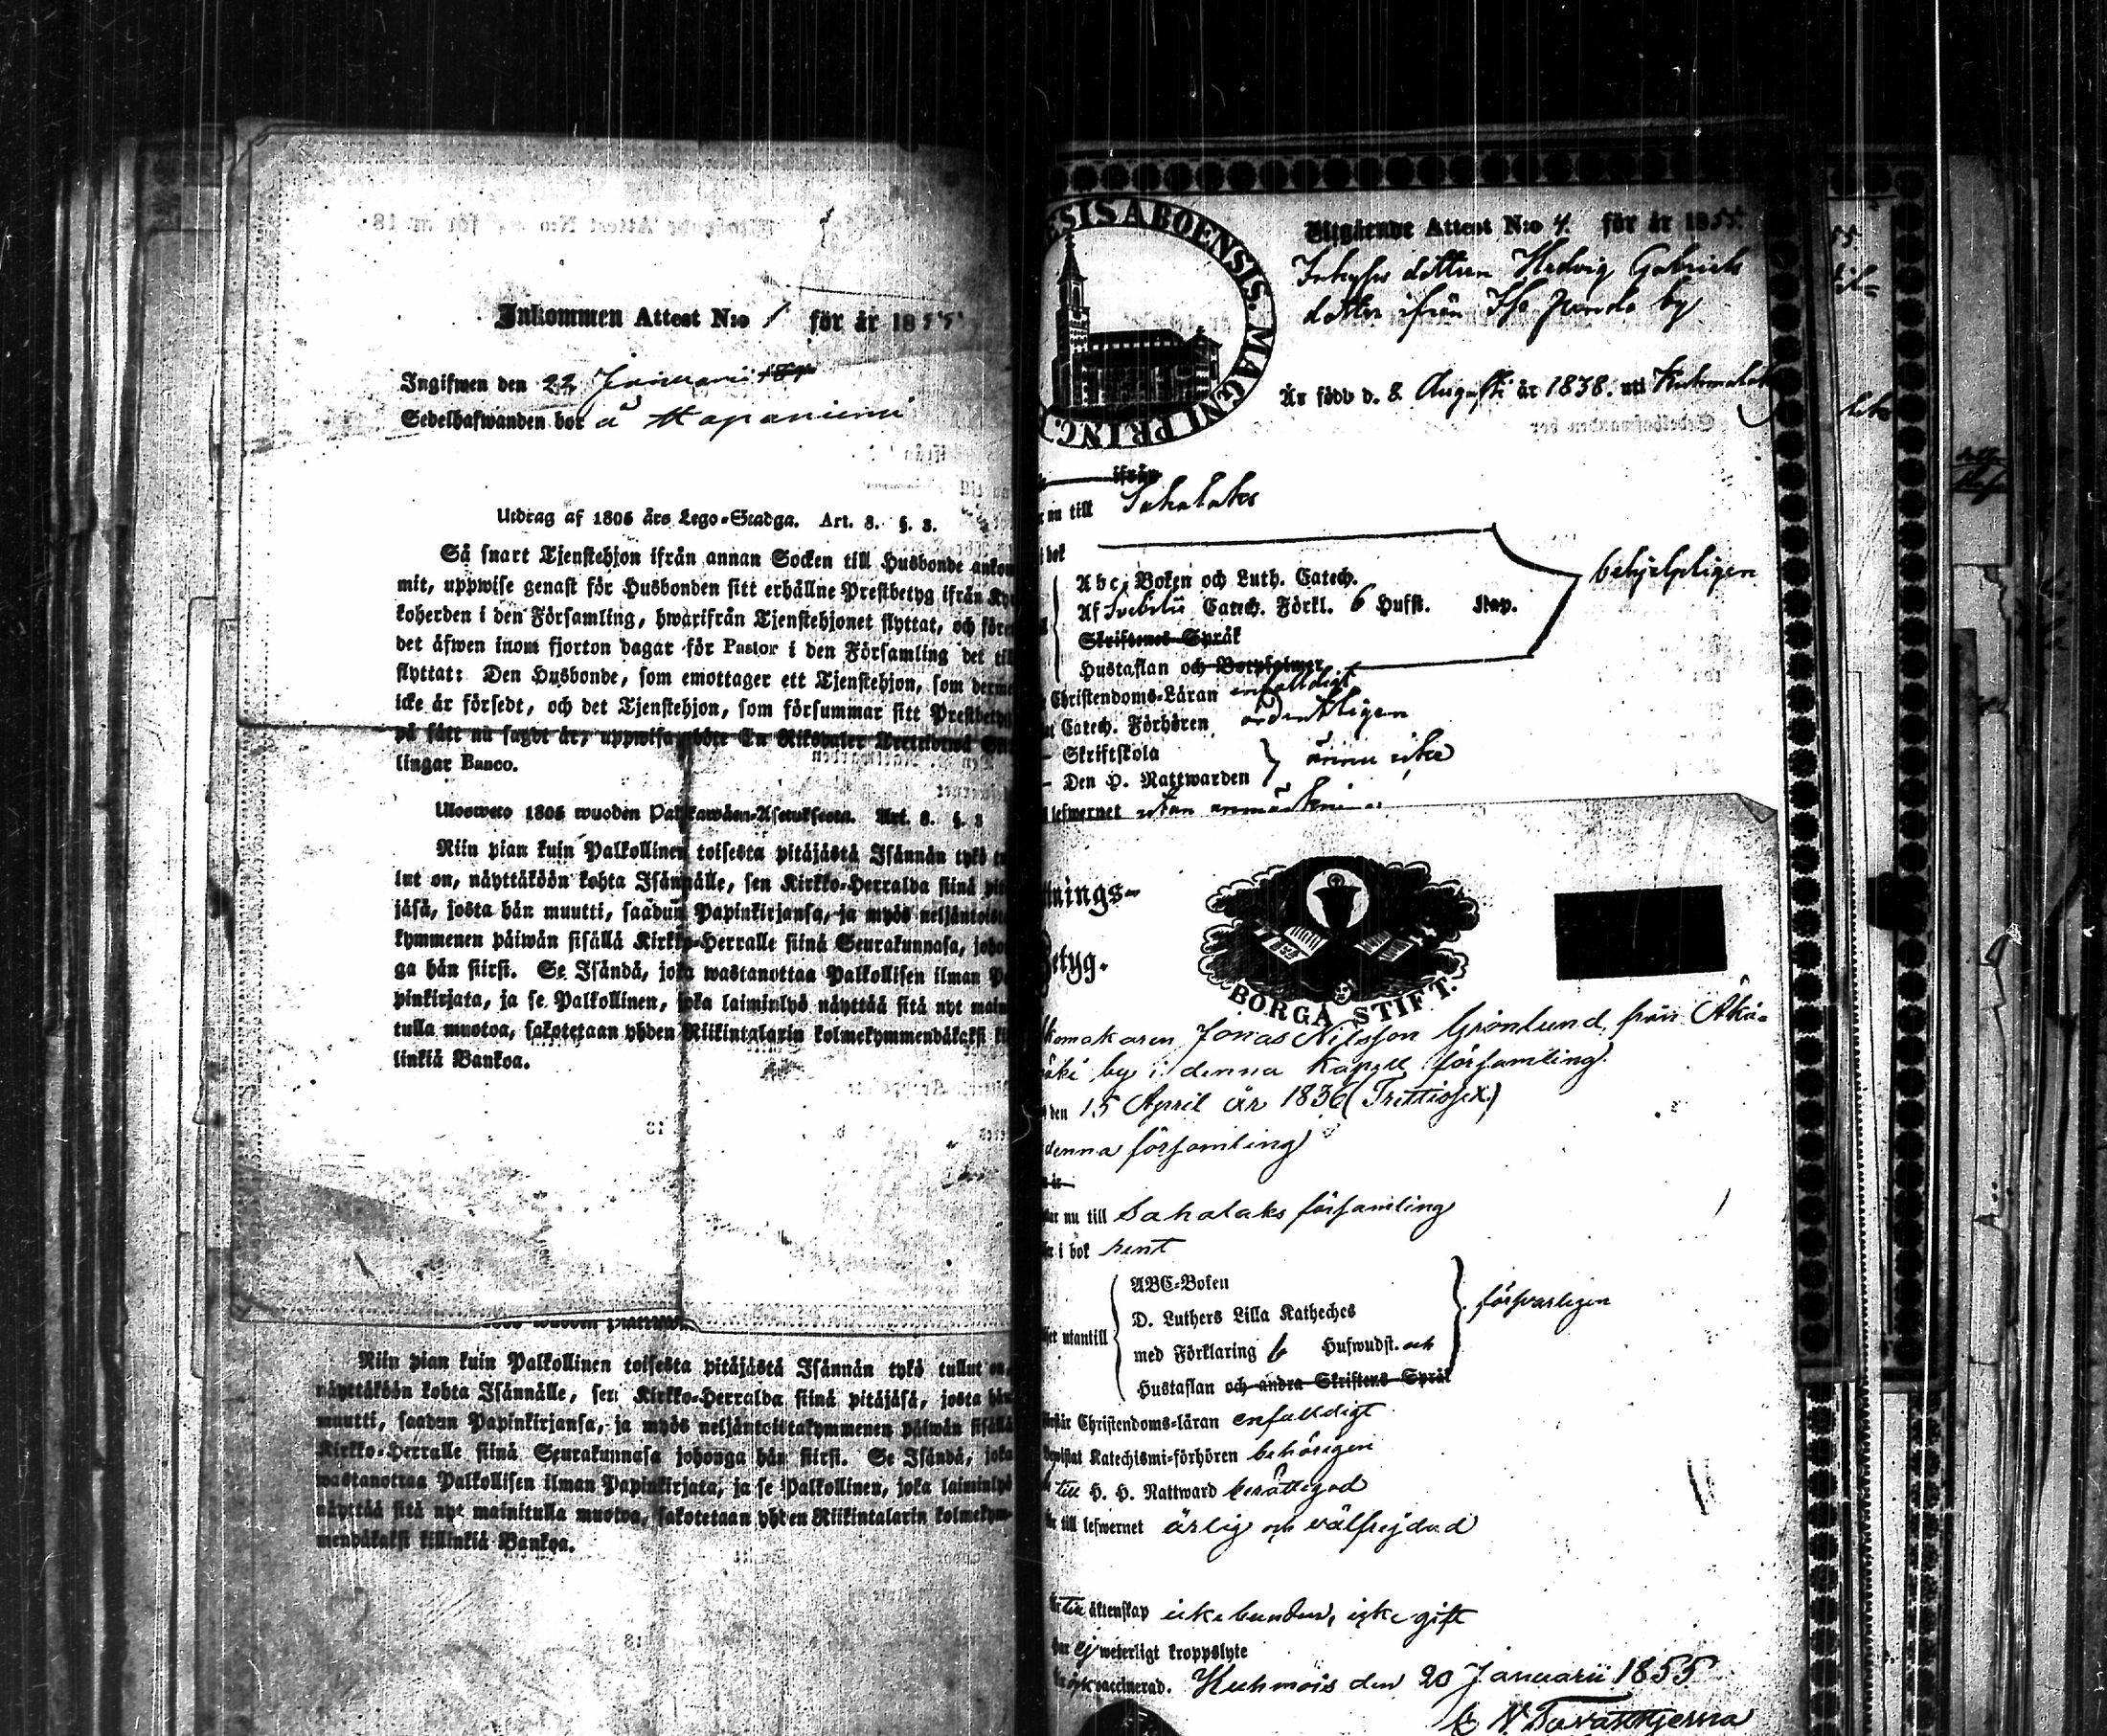 Inkommen Attest N:o 1 för år 1855
Ingifwen den 22 Januari
Sedelhafwanden bor å Hapaniemi
Utdrag af 1805 års Lego-Stadga. Art. 8. §. 3.
Så snart Tjenstehjon ifrån annan Socken till Husbonde
mit, uppwise genast för Husbonden sitt erhållne Prestbetyg ifrån
koherden i den Församling, hwarifrån Tjenstehjonet flyttat, och
det äfwen inom fjorton dagar för Pastor i den Församling det
flyttat: Den Husbonde, som emottager ett Tjenstehjon, som
icke är försedt, och det Tjenstehjon, som försummar sitt
på sätt nu sagdt är, uppwisa, böte En Riksdaler
lingar Banco.
Ulosweto 1805 wuoden Palkawäen-Asetuksesta. Art. 8. §. 3
Niin pian kuin Palkollinen toisesta pitäjästä Isännän tykö
lut on, näyttäköön kohta Isännälle, sen Kirkko-Herralda siinä
jäsä, josta hän muutti, saadun Papinkirjansa, ja myös
kymmenen päiwän sisällä Kirkko-Herralle siinä Seurakunnasa,
ga hän siirsi. Se Isändä, joka wastanottaa Palkollisen ilman
pinkirjata, ja se Palkollinen, joka laiminlyö näyttää sitä nyt
tulla muotoa, sakotetaan yhden Riikintalarin kolmekymmendäkaksi
linkiä Bankoa.
Niin pian kuin Palkollinen toisesta pitäjästä Isännän tykö tullut on,
näyttäköön kohta Isännälle, sen Kirkko-Herralda siinä pitäjäsä, josta hän
muutti, saadun Papinkirjansa, ja myös neljäntoistakymmenen päiwän sisällä
Kirkko-Herralle siinä Seurakunnasa johonga hän siirsi. Se Isändä, joka
wastanottaa Palkollisen ilman Papinkirjata, ja se Palkollinen, joka laiminlyö
näyttää sitä nyt mainitulla muotoa, sakotetaan yhden Riikintalarin kolmekym-
mendäkaksi killinkiä Bankoa.
ESIS ABOENSIS. MAGNI PRINC
Utgående Attest N:o 4. för år 1855.
dottern Hedvig Gabriels
dotter ifrån by
Är född d. 8 Augusti år 1838. uti Kuhmalaks
ifrån
nu till Sahalaks
bok
Abc-Boken och Luth. Catech.
Af Svebelii Catech. Förkl. 6 Hufst. Kap.
Skriftenes Språk
Hustaflan och Botpsalmer
behjelpligen
Christendoms-Läran enfalldigt
Catech. Förhören ordentligen
Skriftskola
Den H. Nattwarden
ännu icke
lefwernet utan anmärkning
tnings-
Betyg.
BORGÅ STIFT.
Jonas Nilsson Grönlund, från Åkä-
by i denna Kapell församling
den 15 April år 1836 (Trettiosex)
denna församling
nu till Sahalaks församling
i bok rent
utantill
ABC-Boken
D. Luthers Lilla Katheches
med Förklaring 6 Hufwudst. och
Hustaflan och andra Skriftens Språk
försvarligen
Christendoms-läran enfalldigt
Katechismi-förhören behörigen
till H. H. Nattward berättigad
till lefwernet ärlig och välfrejdad
till äktenskap icke bunden, icke gift
ej weterligt kroppslyte
vaccinerad. Kuhmois den 20 Januarii 1855
N Tavaststjerna